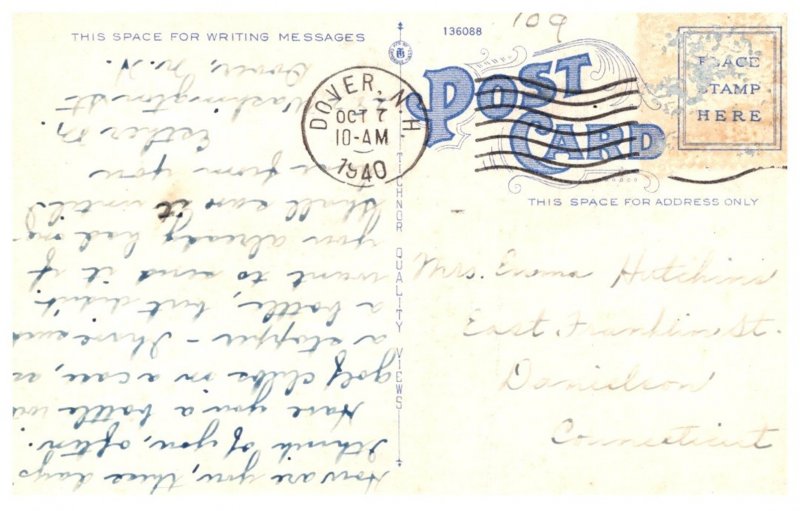 THIS SPACE FOR WRITING MESSAGES
136088
109
POST CARD
PLACE
STAMP
HERE
DOVER, N.H
OCT 7
10-AM
1940
THIS SPACE FOR ADDRESS ONLY
TICHNOR QUALITY VIEWS
How are you, these days
I think of you, often.
Have you a bottle
golf clubs on a case, as
a stopper - I have such
a bottle, but didn't
want to send it if
you already had one
Shall save it until I
hear from you
Esther M
Washington St
Dover, N. H.
Mrs. Emma Hutchins
East Franklin St.
Danielson
Connecticut